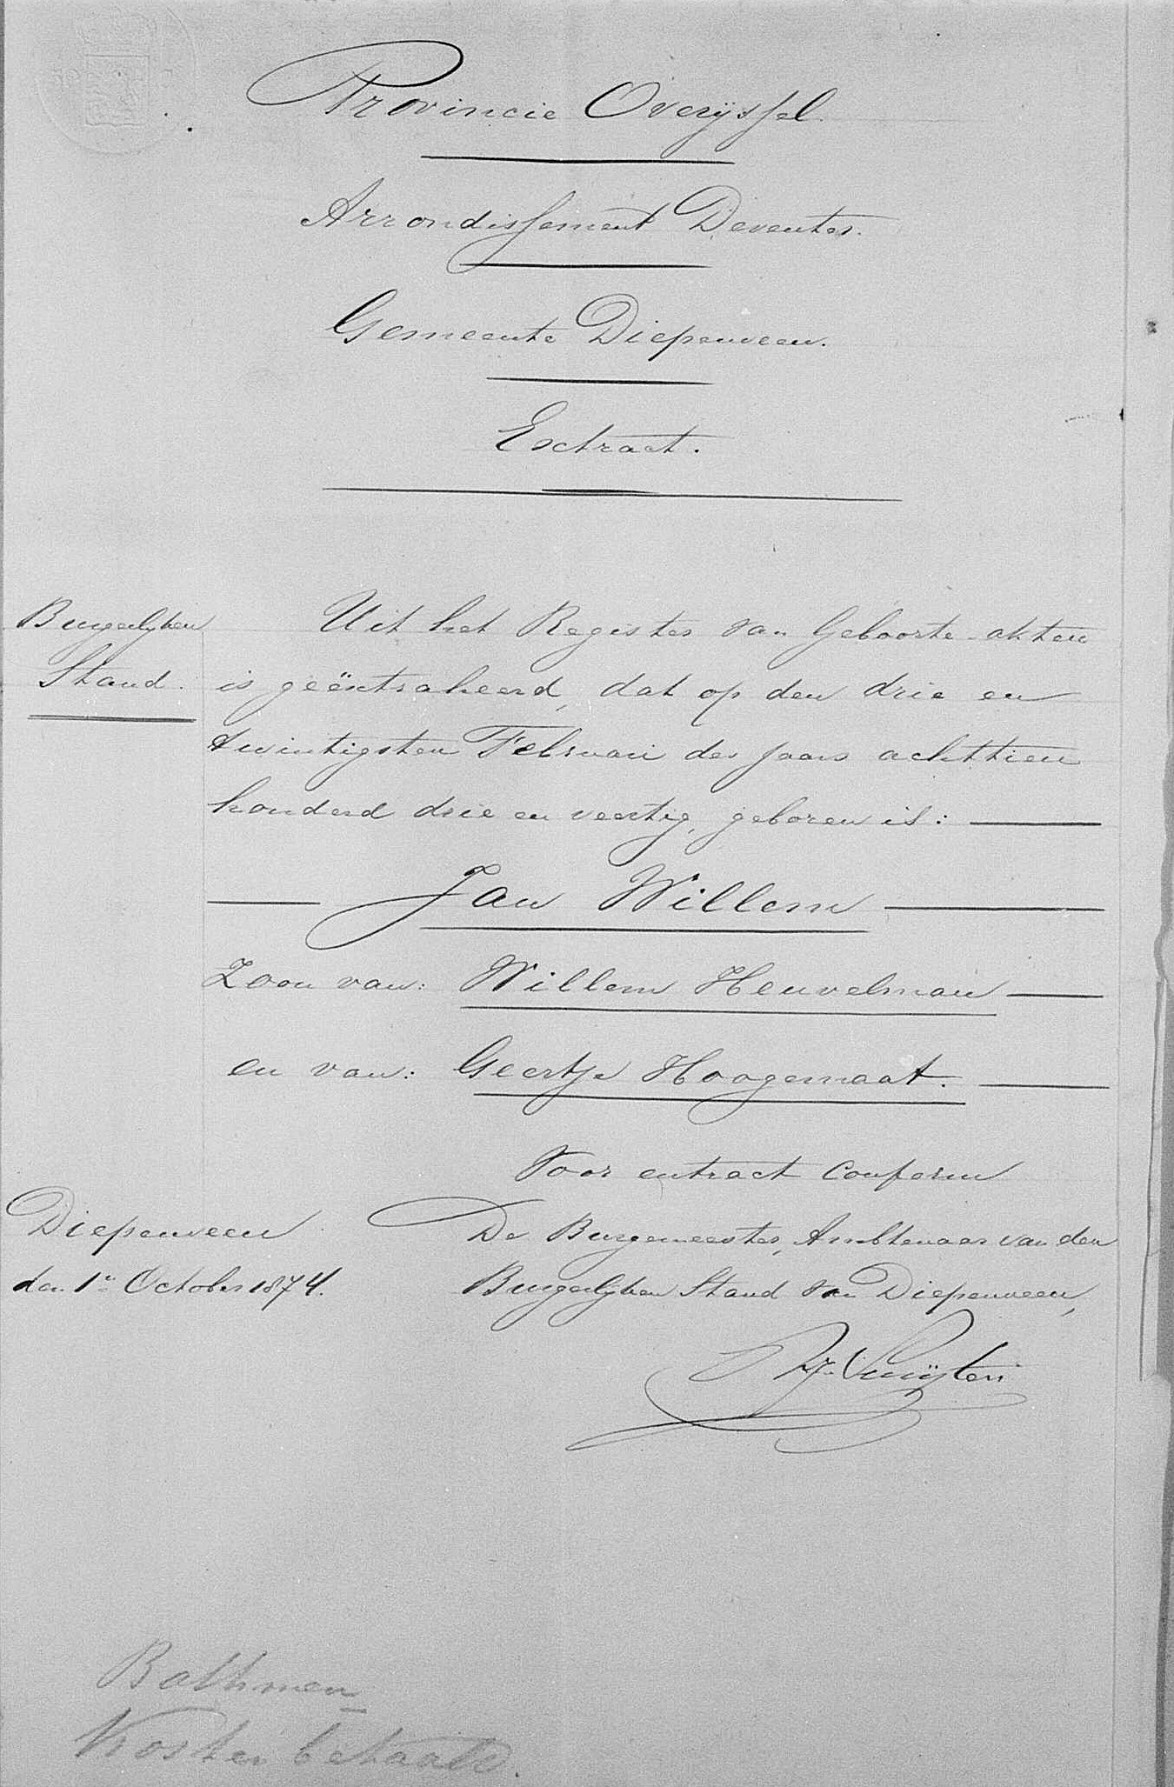 Provincie Overijssel.
Arrondissement Deventer.
Gemeente Diepenveen.
Extract.
Burgerlijken
Stand.
Uit het Register van Geboorte-akten
is geëxtraheerd, dat op den drie en
twintigsten Februari des jaars achttien
honderd drie en veertig, geboren is:
Jan Willem
Zoon van: Willem Heuvelman
en van: Geertje Hoogemaat.
Voor extract conform
De Burgemeester, Ambtenaar van den
Burgerlijken Stand van Diepenveen,
Diepenveen
den 1n October 1874.
Bathmen
Kosten betaald.